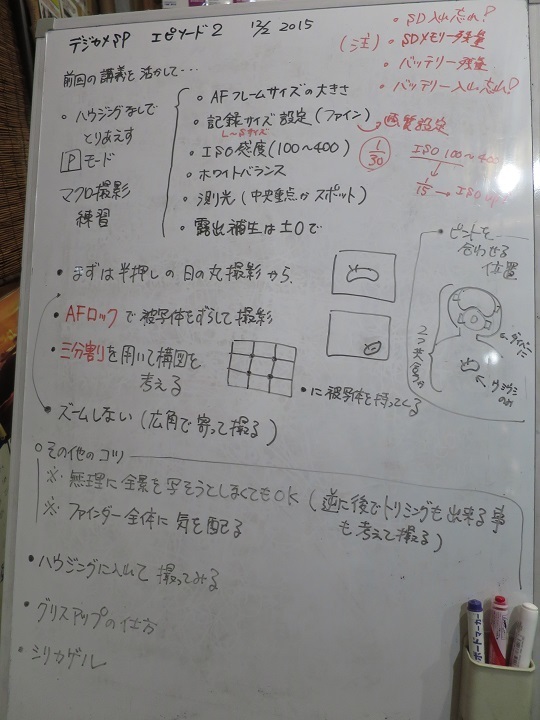 デジカメSP エピソード2 12/2 2015
・SD入れ忘れ?
(注)・SDメモリー残量
・バッテリー残量
・バッテリー入れ忘れ?
前回の講義を活かして・・・
・ハウジングなしで
とりあえず
Pモード
マクロ撮影
練習
・AFフレームサイズの大きさ
・記録サイズ設定(ファイン)
画質設定
L〜Sサイズ
・ISO感度(100〜400)
1/30
ISO 100〜400
1/15 → ISO up
・ホワイトバランス
・測光(中央重点かスポット)
・露出補生は±0で
・まずは半押しの日の丸撮影から、
・AFロックで被写体をずらして撮影
・三分割を用いて構図を
考える
・に被写体を持ってくる
・ズームしない(広角で寄って撮る)
・ピントを
合わせる
位置
ダイバーに
ウミウシ
のみ
○その他のコツ
※無理に全景を写そうとしなくてもOK(逆に後でトリミングも出来る事
も考えて撮る)
※ファインダー全体に気を配る
・ハウジングに入れて撮ってみる
・グリスアップの仕方
・シリカゲル